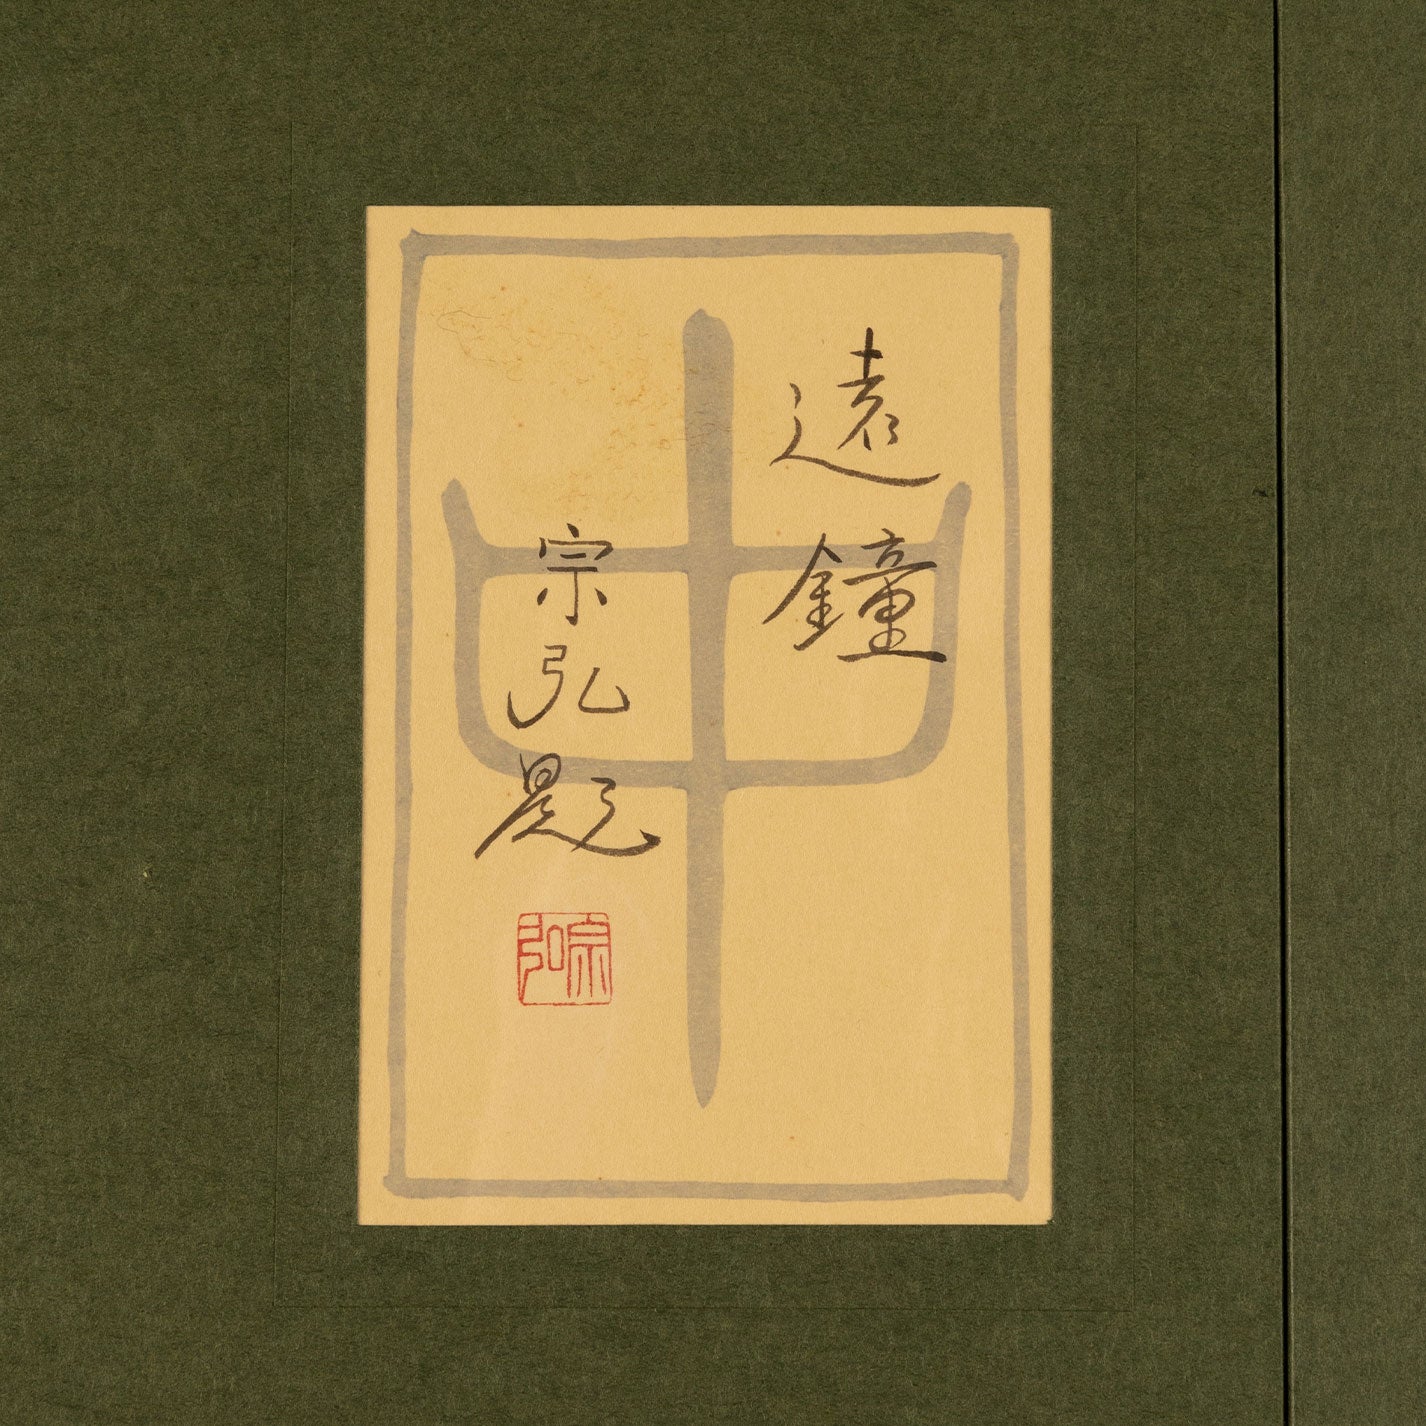 遠鐘
宗弘題
宗弘